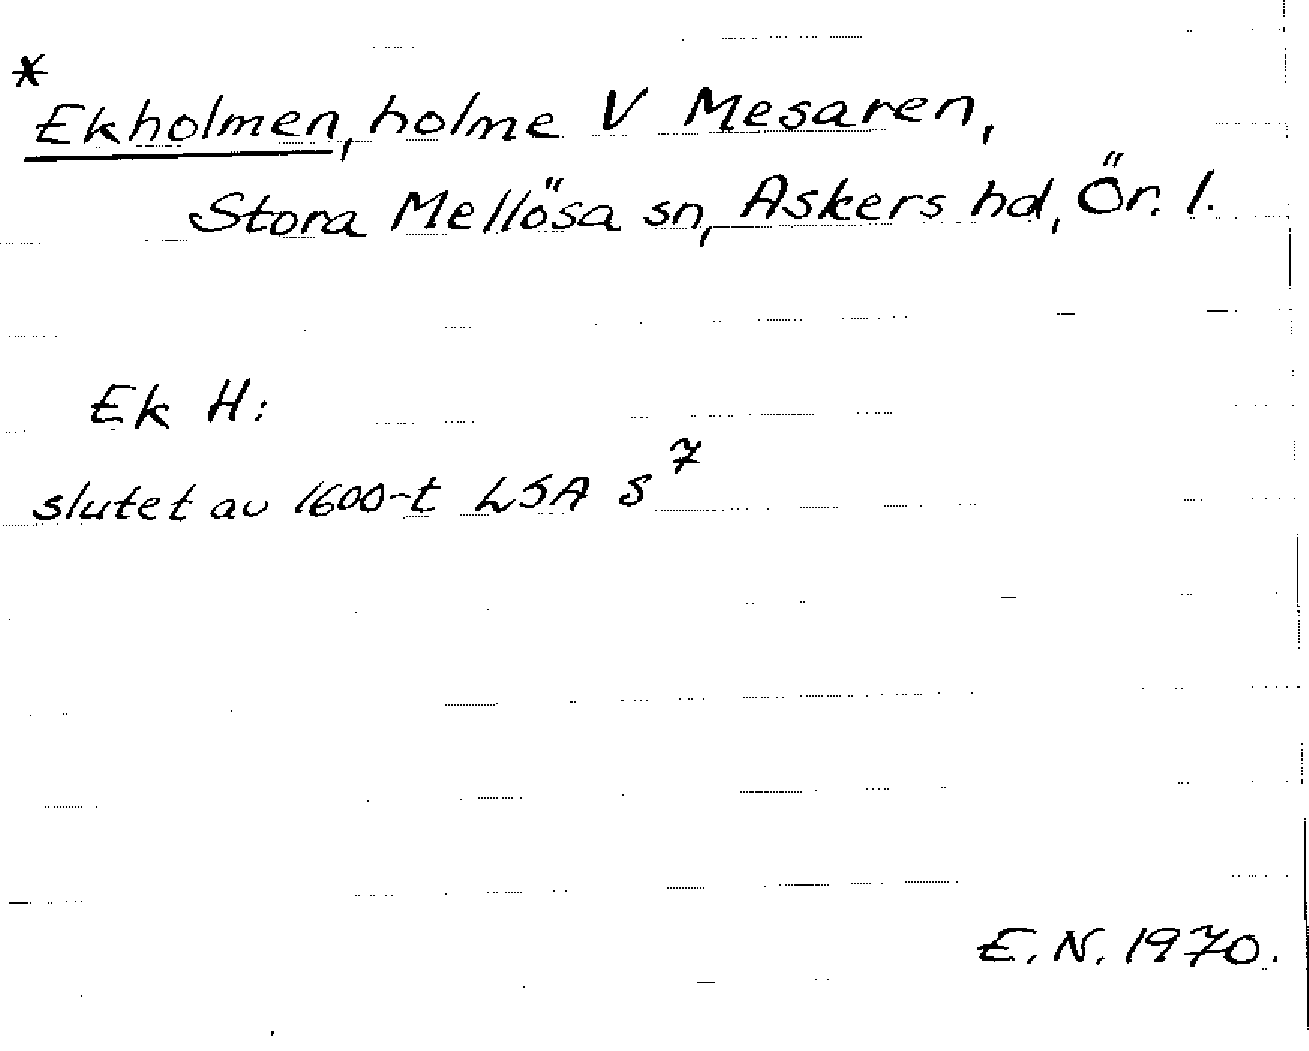 *
Ekholmen, holme V Mesaren,
Stora Mellösa sn, Askers hd, Ör. l.
Ek H:
slutet av 1600-t LSA S⁷
E. N. 1970.